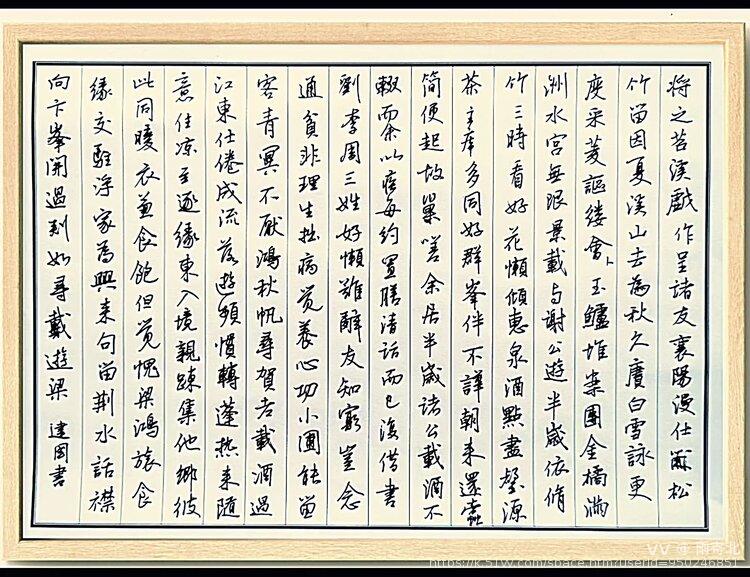 将之苕溪戲作呈諸友襄陽漫仕黻松
竹留因夏溪山去為秋久賡白雪詠更
度采菱謳縷會卜玉鱸堆案團金橘滿
洲水宮無限景載与謝公遊半歲依脩
竹三時看好花懶傾惠泉酒點盡壑源
茶主席多同好群峯伴不譁朝来還蠹
簡便起故巢嗟余居半歲諸公載酒不
輟而余以疾每約置膳清話而已復借書
劉李周三姓好懶難辭友知窮豈念
通貧非理生拙病覺養心功小圃能留
客青冥不厭鴻秋帆尋賀老載酒過
江東仕倦成流落遊頻慣轉蓬热来随
意住凉至逐緣東入境親踈集他鄉彼
此同暖衣兼食飽但覺愧梁鴻旅食
緣交駐浮家為興来句留荆水話襟
向卞峯開過剡如尋戴遊梁 建国書
https://k.51vv.com/space.htm?userid=950246851